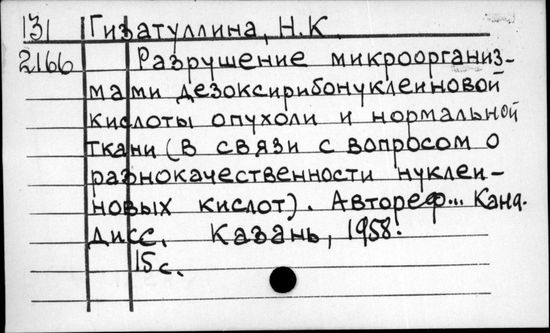 131 Гизатуллина, Н.К.
2166 Разрушение микроорганиз-
мами дезоксирибонуклеиновой
кислоты опухоли и нормальной
ткани (в связи с вопросом о
разнокачественности нуклеи-
новых кислот). Автореф... Канд.
дисс. Казань, 1958.
15с.